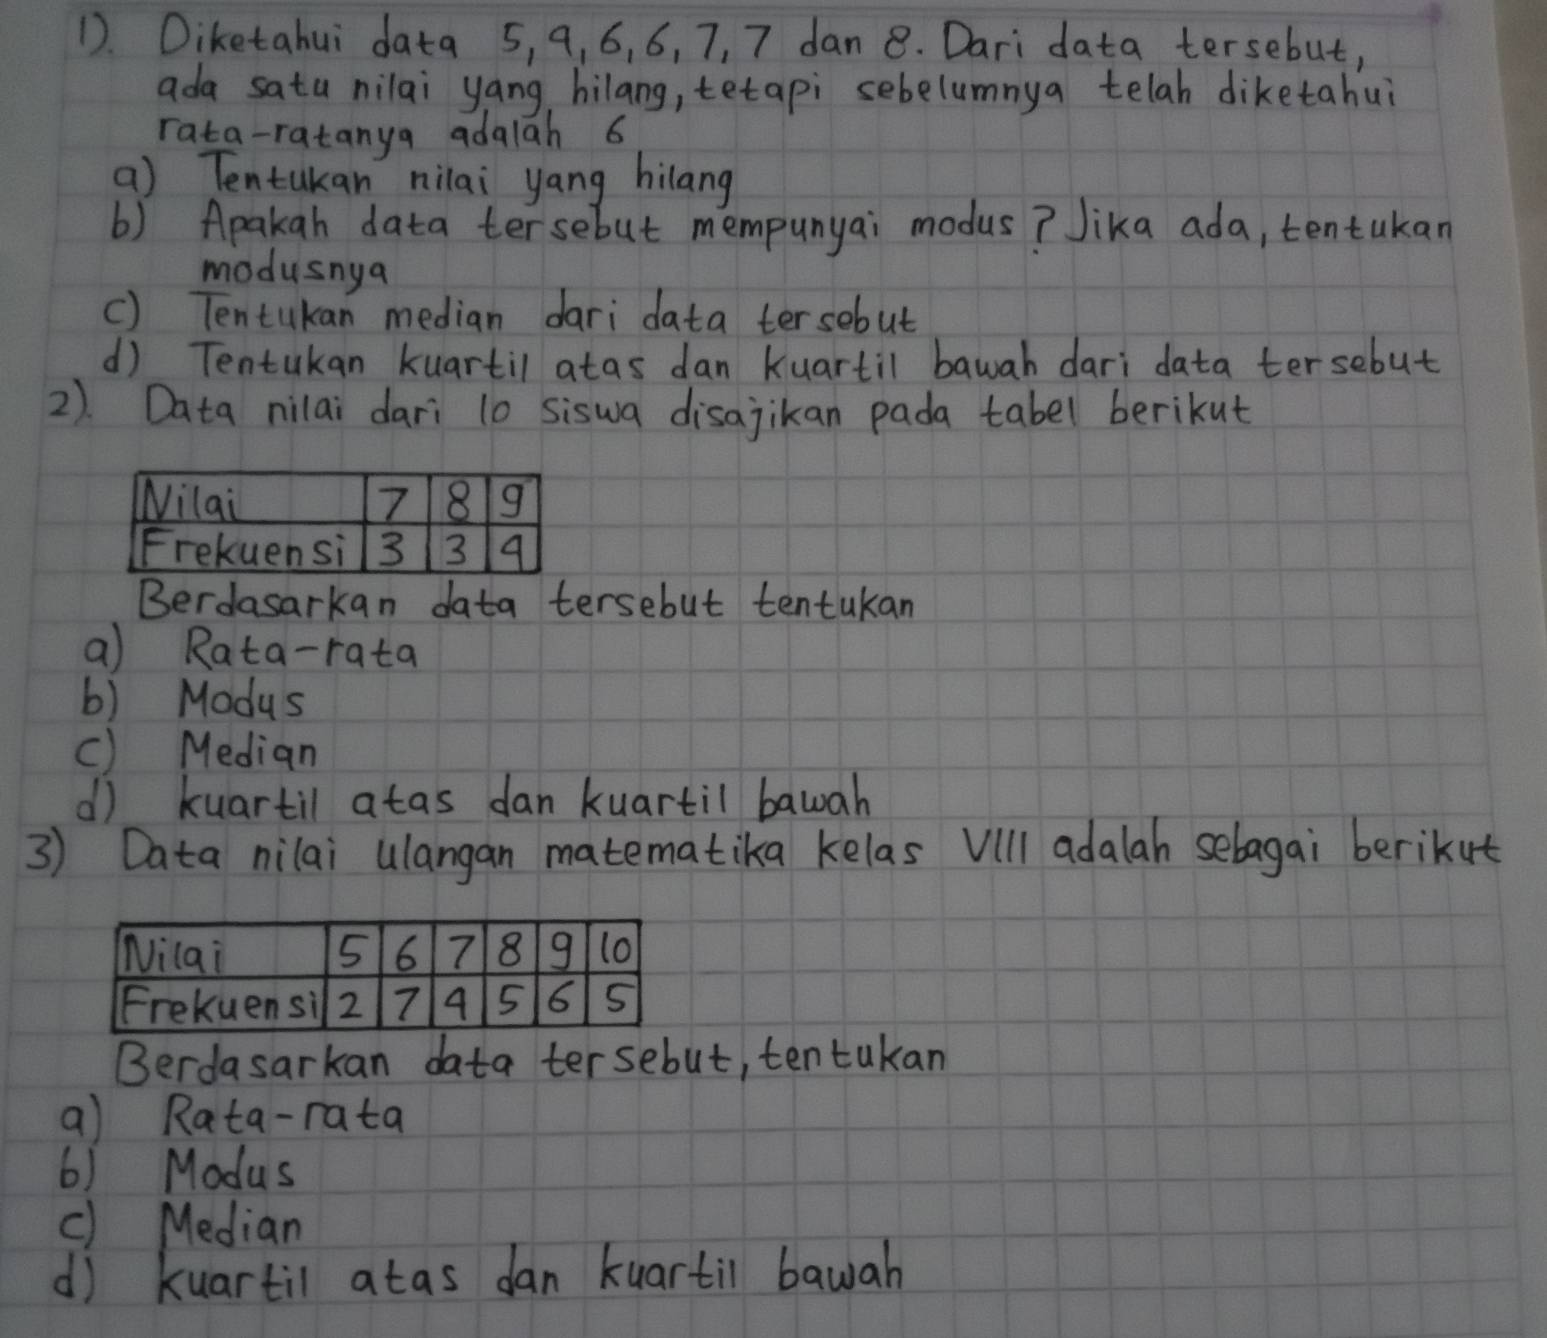 1). Diketahui data 5, 4, 6, 6, 7, 7 dan 8. Dari data tersebut,
ada satu nilai yang hilang, tetapi sebelumnya telah diketahui
rata-ratanya adalah 6
a) Tentukan nilai yang hilang
b) Apakah data tersebut mempunyai modus? Jika ada, tentukan
modusnya
c) Tentukan median dari data tersebut
d) Tentukan kuartil atas dan kuartil bawah dari data tersebut
2). Data nilai dari 10 siswa disajikan pada tabel berikut
Nilai 7 8 9
Frekuensi 3 3 4
Berdasarkan data tersebut tentukan
a) Rata-rata
b) Modus
c) Median
d) kuartil atas dan kuartil bawah
3) Data nilai ulangan matematika kelas VIII adalah sebagai berikut
Nilai 5 6 7 8 9 10
Frekuensi 2 7 4 5 6 5
Berdasarkan data tersebut, tentukan
a) Rata-rata
b) Modus
c) Median
d) kuartil atas dan kuartil bawah